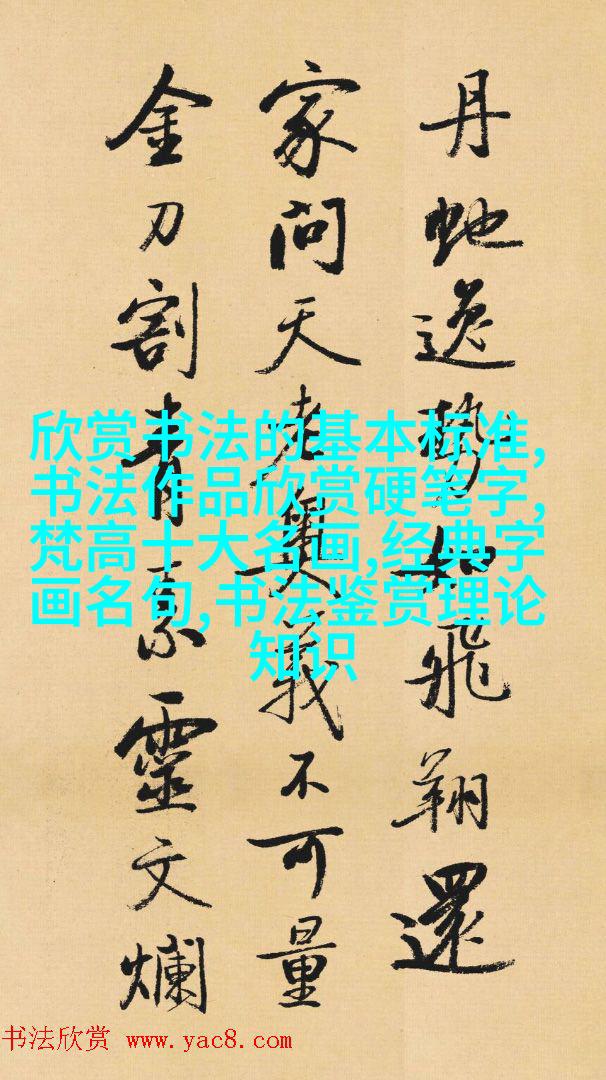 丹虵逸勢如飛翔還
家問天老奧義不可量
金刀割青素靈文爛
欣赏书法的基本标准,
书法作品欣赏硬笔字,
梵高十大名画,经典字
画名句,书法鉴赏理论
知识
书法欣赏 www.yac8.com